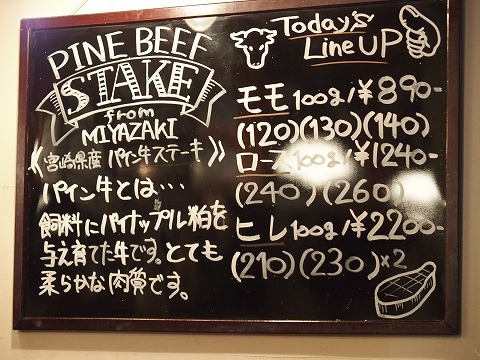 PINE BEEF
STAKE
from
MIYAZAKI
《宮崎県産 パイン牛ステーキ》
パイン牛とは…
飼料にパイナップル粕を
与え育てた牛です。とても
柔らかな肉質です。
Today's
Line UP
モモ100g/¥890-
(120)(130)(140)
ロース100g/¥1240-
(240)(260)
ヒレ100g/¥2200-
(210)(230)×2